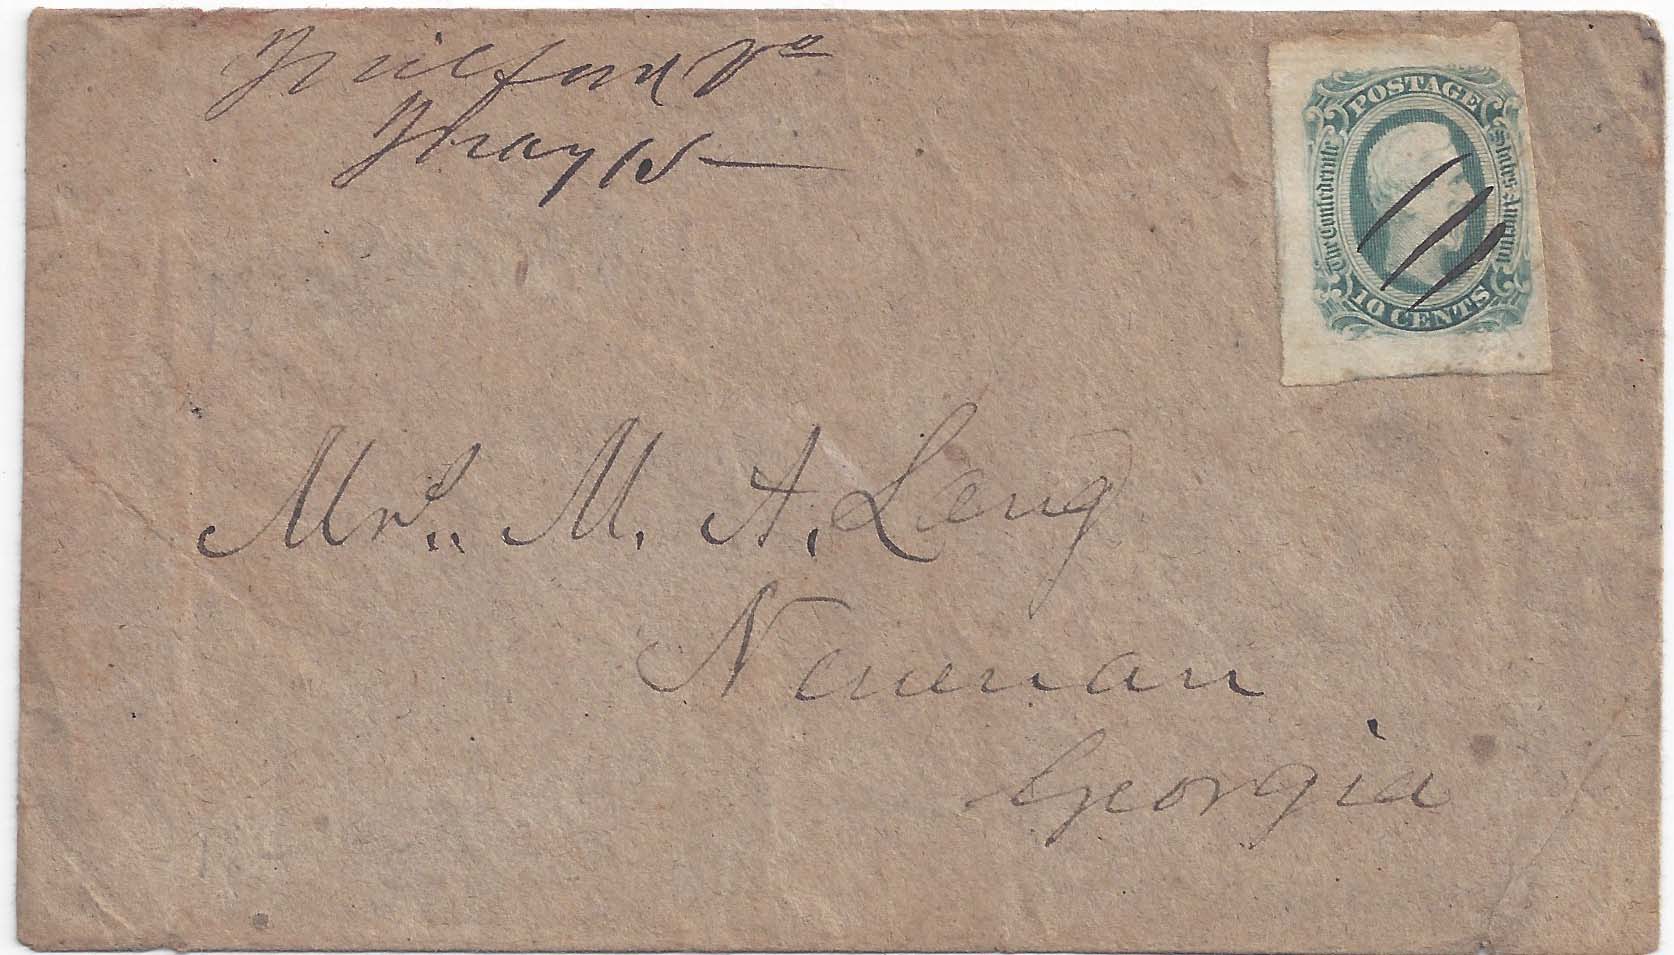 Milford Va
May 15
POSTAGE
The Confederate
States America
10 CENTS
Mrs. M. A. Lang
Newnan
Georgia